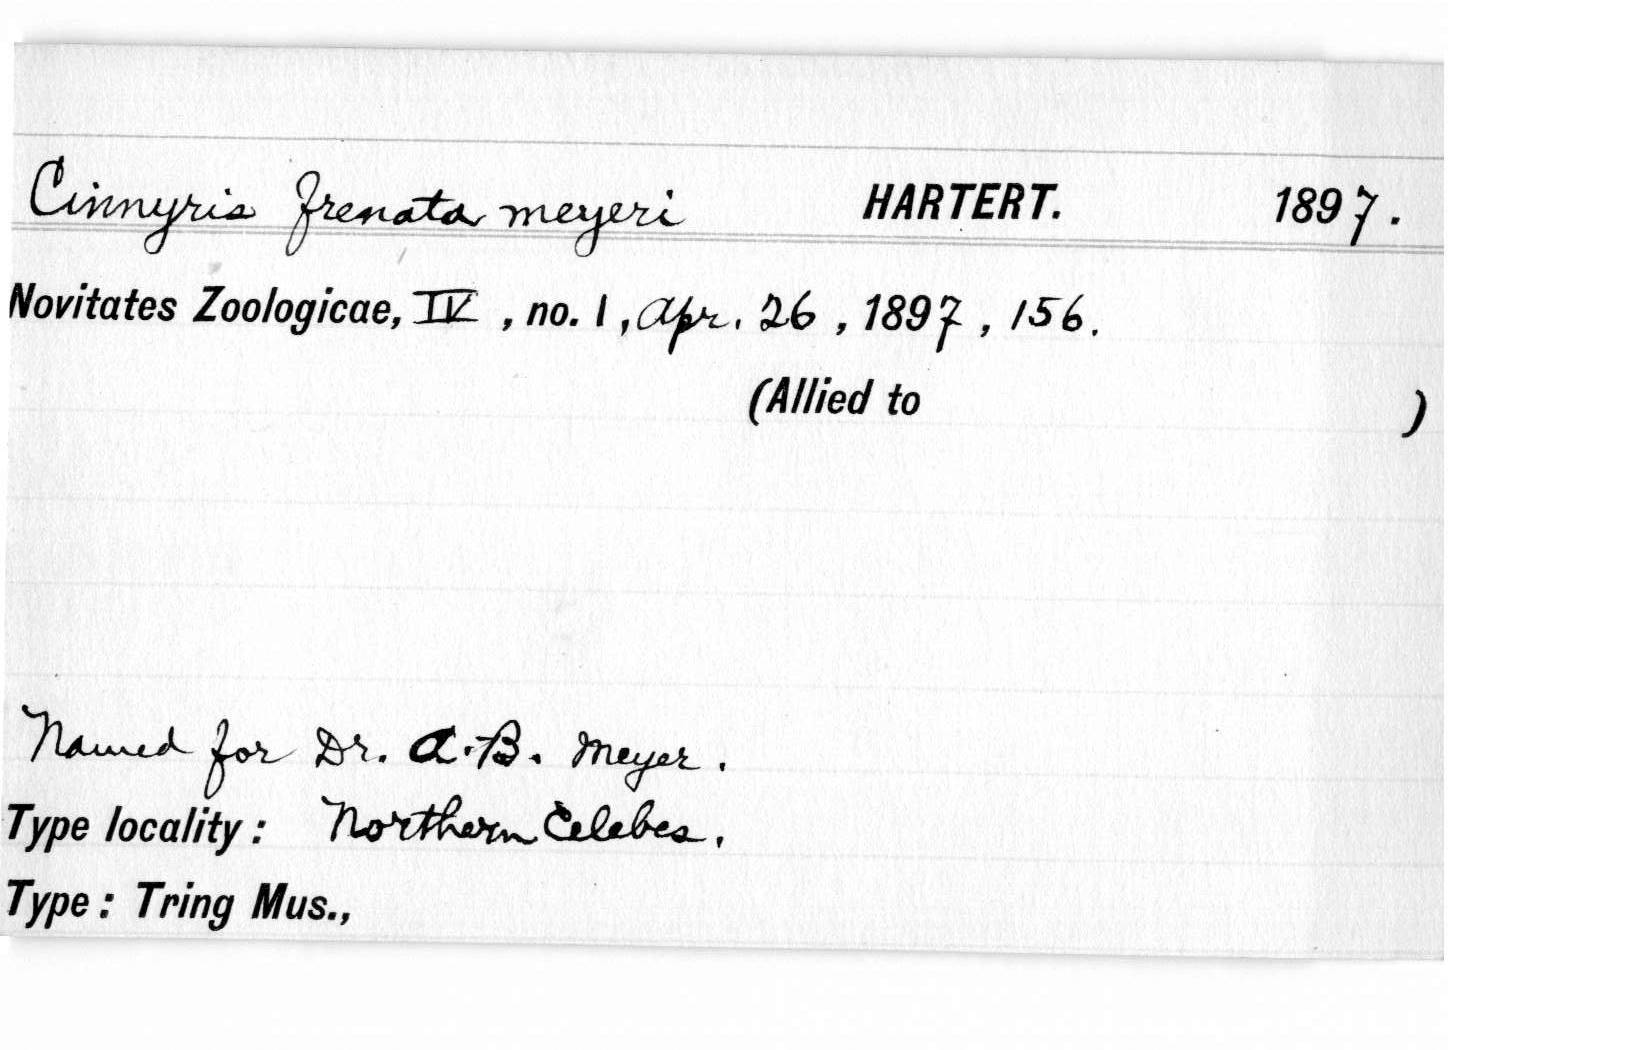 Cinnyris frenata meyeri HARTERT. 1897.
Novitates Zoologicae, IV, no. 1, Apr. 26, 1897, 156.
(Allied to )
Named for Dr. A. B. Meyer.
Type locality: Northern Celebes.
Type: Tring Mus.,